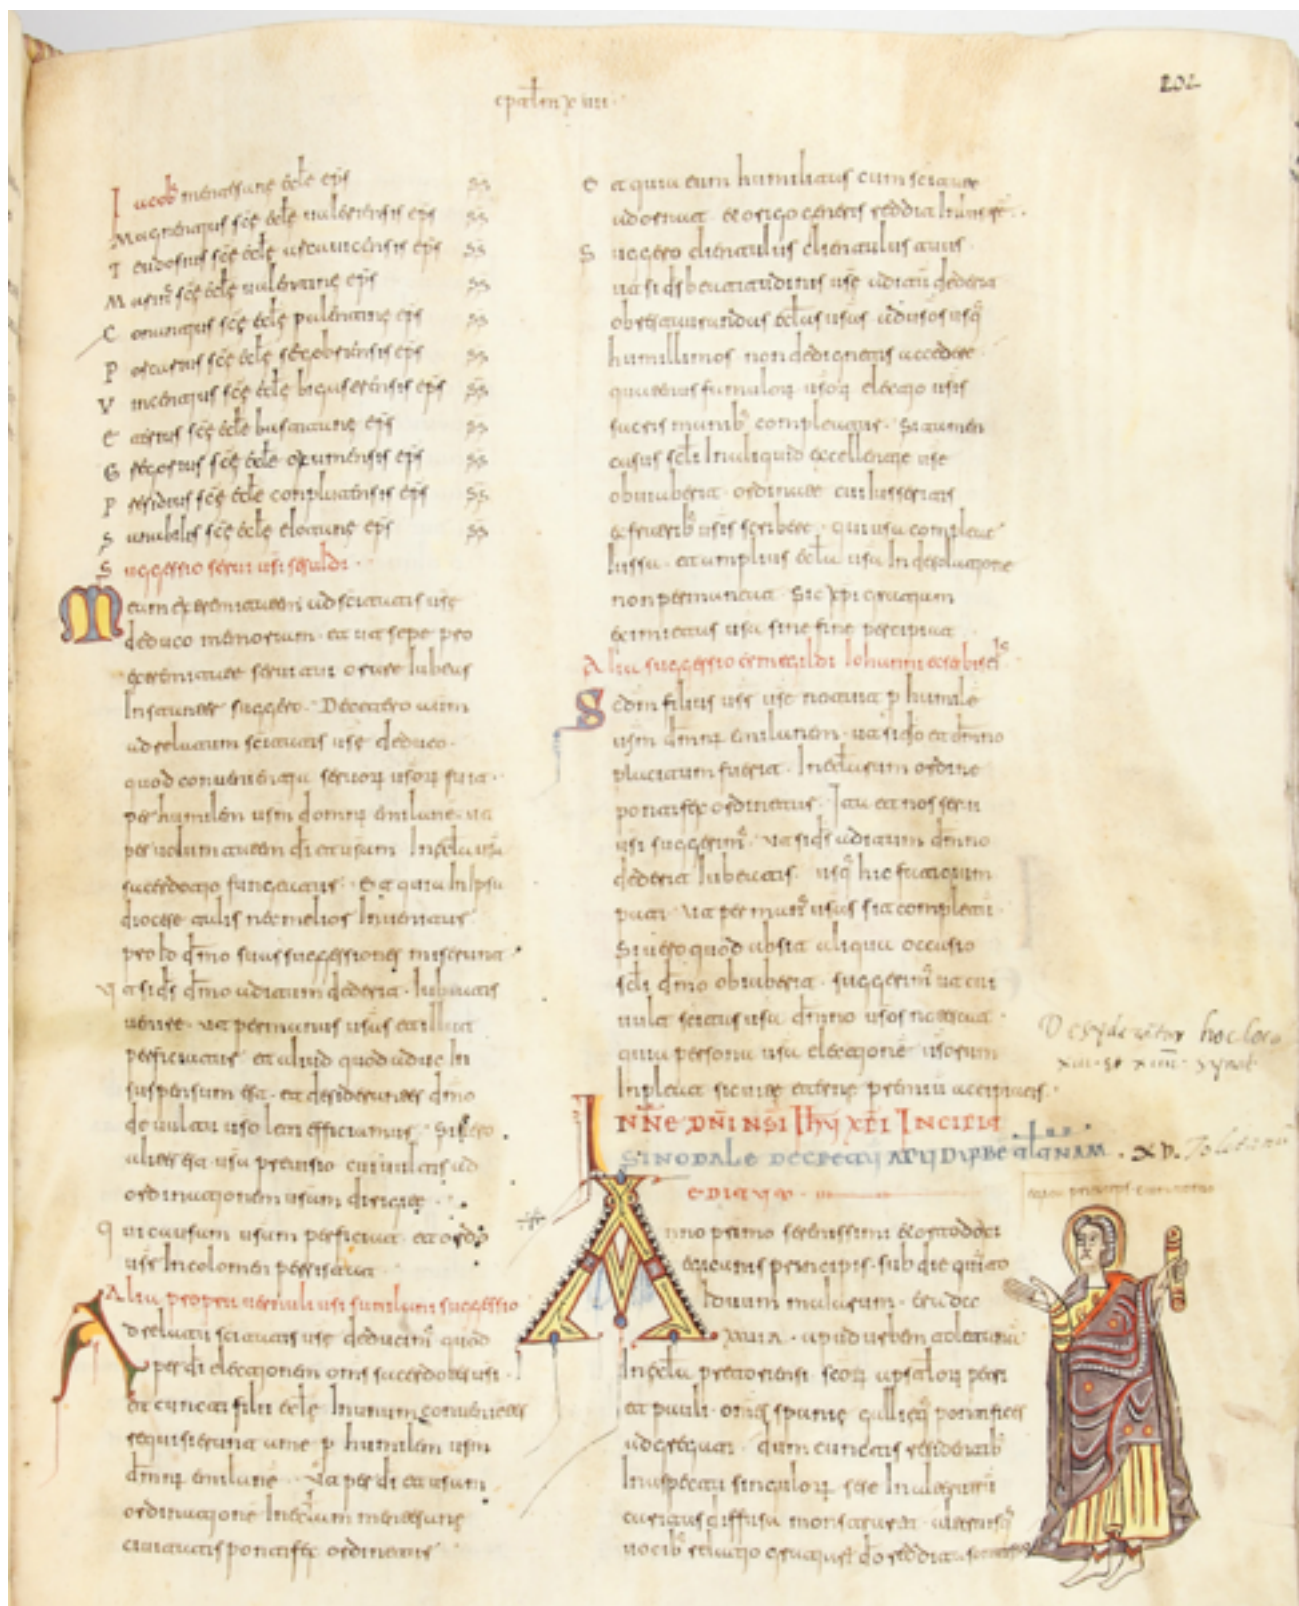 cpaten xiiii
202
Iacob mentesane ecle eps ss
Magnentius sce ecle valeriensis eps ss
Teudosius sce ecle arcavicensis eps ss
Masim sce ecle valentine eps ss
Conantius sce ecle palentine eps ss
Poscarius sce ecle secobriensis eps ss
Vincentius sce ecle bigaserensis eps ss
Eterius sce ecle bastitane eps ss
Gregorius sce ecle oxumensis eps ss
Presidius sce ecle conplutensis eps ss
Sanabilis sce ecle elotane eps ss
Suggessio servi vsi sesuldi
Meam exeremitatem ad sciatatis vse
deduco memoriam et ut sepe pro
exeremitate servitati orare iubeas
Instanter suggero Decetero etiam
ad relatum sciatatis vse deduco
quod convenientia servorum vsorum fuia
per humilem vsm domnum emilane ut
per voluntatem di et vsam In ecla vsa
sacerdotio fungeatur Et quia In ipsa
diocese talis nec melios Invenitur
pro to dmo suas suggessiones miserunt
vt si ds dmo aditum dederit Iubeatis
venire vt per manus vsas et illut
perficiatur et aliud quod aduc In
suspensum est et desiderantes dmo
de vultu vso leti efficiamur Si vero
aliter est vsa previsio cui vultis ad
ordinationem vsam dirigite
qui causam vsam perficiat et ordo
vse Incolomem persistat
Alia proprii vernuli vsi sunilani suggessio
Ad relatu sciatatis vse deducim quod
per di electionem oms sacerdotes vsi
et cuncti filii ecle In unum convenientes
requisierunt a me p humilem vsm
dmm emilane Vt per di et vsam
ordinatione In eclam mentesane
civitatis pontifex ordinetis
et quia eum humilitatis cum sciatate
adornat et origo generis reddit Inlustre
Suggero clientulus clientulus tuus
ut si ds beatitudinis vse aditu dederit
obsetaurandas eclas vsas ad vsos vsq
humillimos non dedignetis accedere
quatenus famulorum vsorum electio vsis
sacris manib compleatur Si tamen
casus scli In aliquid excellentie vse
obviaberit ordinate cui Iusseritis
ex fratrib vsis scribere qui vsa compleat
Iussa et amplius ecla vsa In desolatione
non permaneat Sic xpi gratiam
eximietas vsa sine fine percipiat
Alia suggessio ermegildi Iohanni
Scdm filius vsr vse notuit p humile
vsm dmm emilanem ut si do et dmno
placitum fuerit In eclesiam ordine
pontifex ordinetur Ita et nos servi
vsi suggerim Vt si ds aditum dmno
dederit Iubeatis vsq hic fatigium
pati Vt per man vsas sit completi
Si vero quod absit aliqua occasio
scli dmo obviaberit suggerim ut cui
vult scitas vsa dmno vsos notescat
quia persona vsa electione vsorum
Inpleat sicuire eterne premiu accipiatis
Desyderatur hoc loco
xiii se xiiii synod
IN Nne DNI NSI Ihu XPI INCIPIT
SINODALE DECRETU
XV. Toletanu
EDITUM
Anno primo serenissimi et ortodoxi
egicanis principis sub die quinto
Iduum maiarum era dcc
apud urbem toletana
In ecla pretoriensi scorum apstlorum petri
et pauli omes spanie gallieq pontifices
adgregati dum cunctis residentib
In aspectu singulorum sese
caritas diffusa monstraret alternisq
vocib relatio do reddita